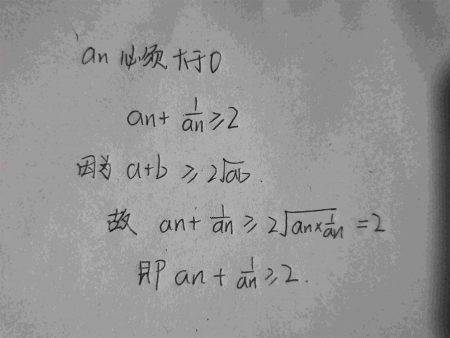 an 必须大于0
an + 1/an ≥ 2
因为 a+b ≥ 2√ab.
故 an + 1/an ≥ 2√(an×1/an) = 2
即 an + 1/an ≥ 2.